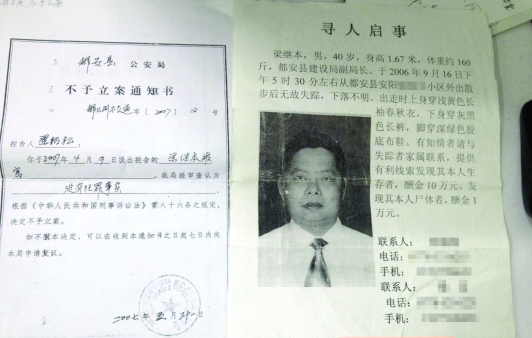 都安县 公安局
不予立案通知书
〔2007〕 号
控告人
你于2007年4月9日提出控告的
我局经审查认为
没有犯罪事实
根据《中华人民共和国刑事诉讼法》第八十六条之规定,
决定不予立案。
如不服本决定,可以在收到本通知书之日起七日内向
本局申请复议。
寻人启事
梁继本,男,40岁,身高1.67米,体重约160
斤,都安县建设局副局长。于2006年9月16日下
午5时30分左右从都安县安阳 小区外出散
步后无故失踪,下落不明。出走时上身穿浅黄色长
袖春秋衣、下身穿灰黑
色长裤,脚穿深绿色胶
底布鞋。有知情者请与
失踪者家属联系,提供
有利线索发现其本人生
存者,酬金10万元、发
现其本人尸体者,酬金1
万元。
联系人:
电话:
手机:
联系人:
电话:
手机: